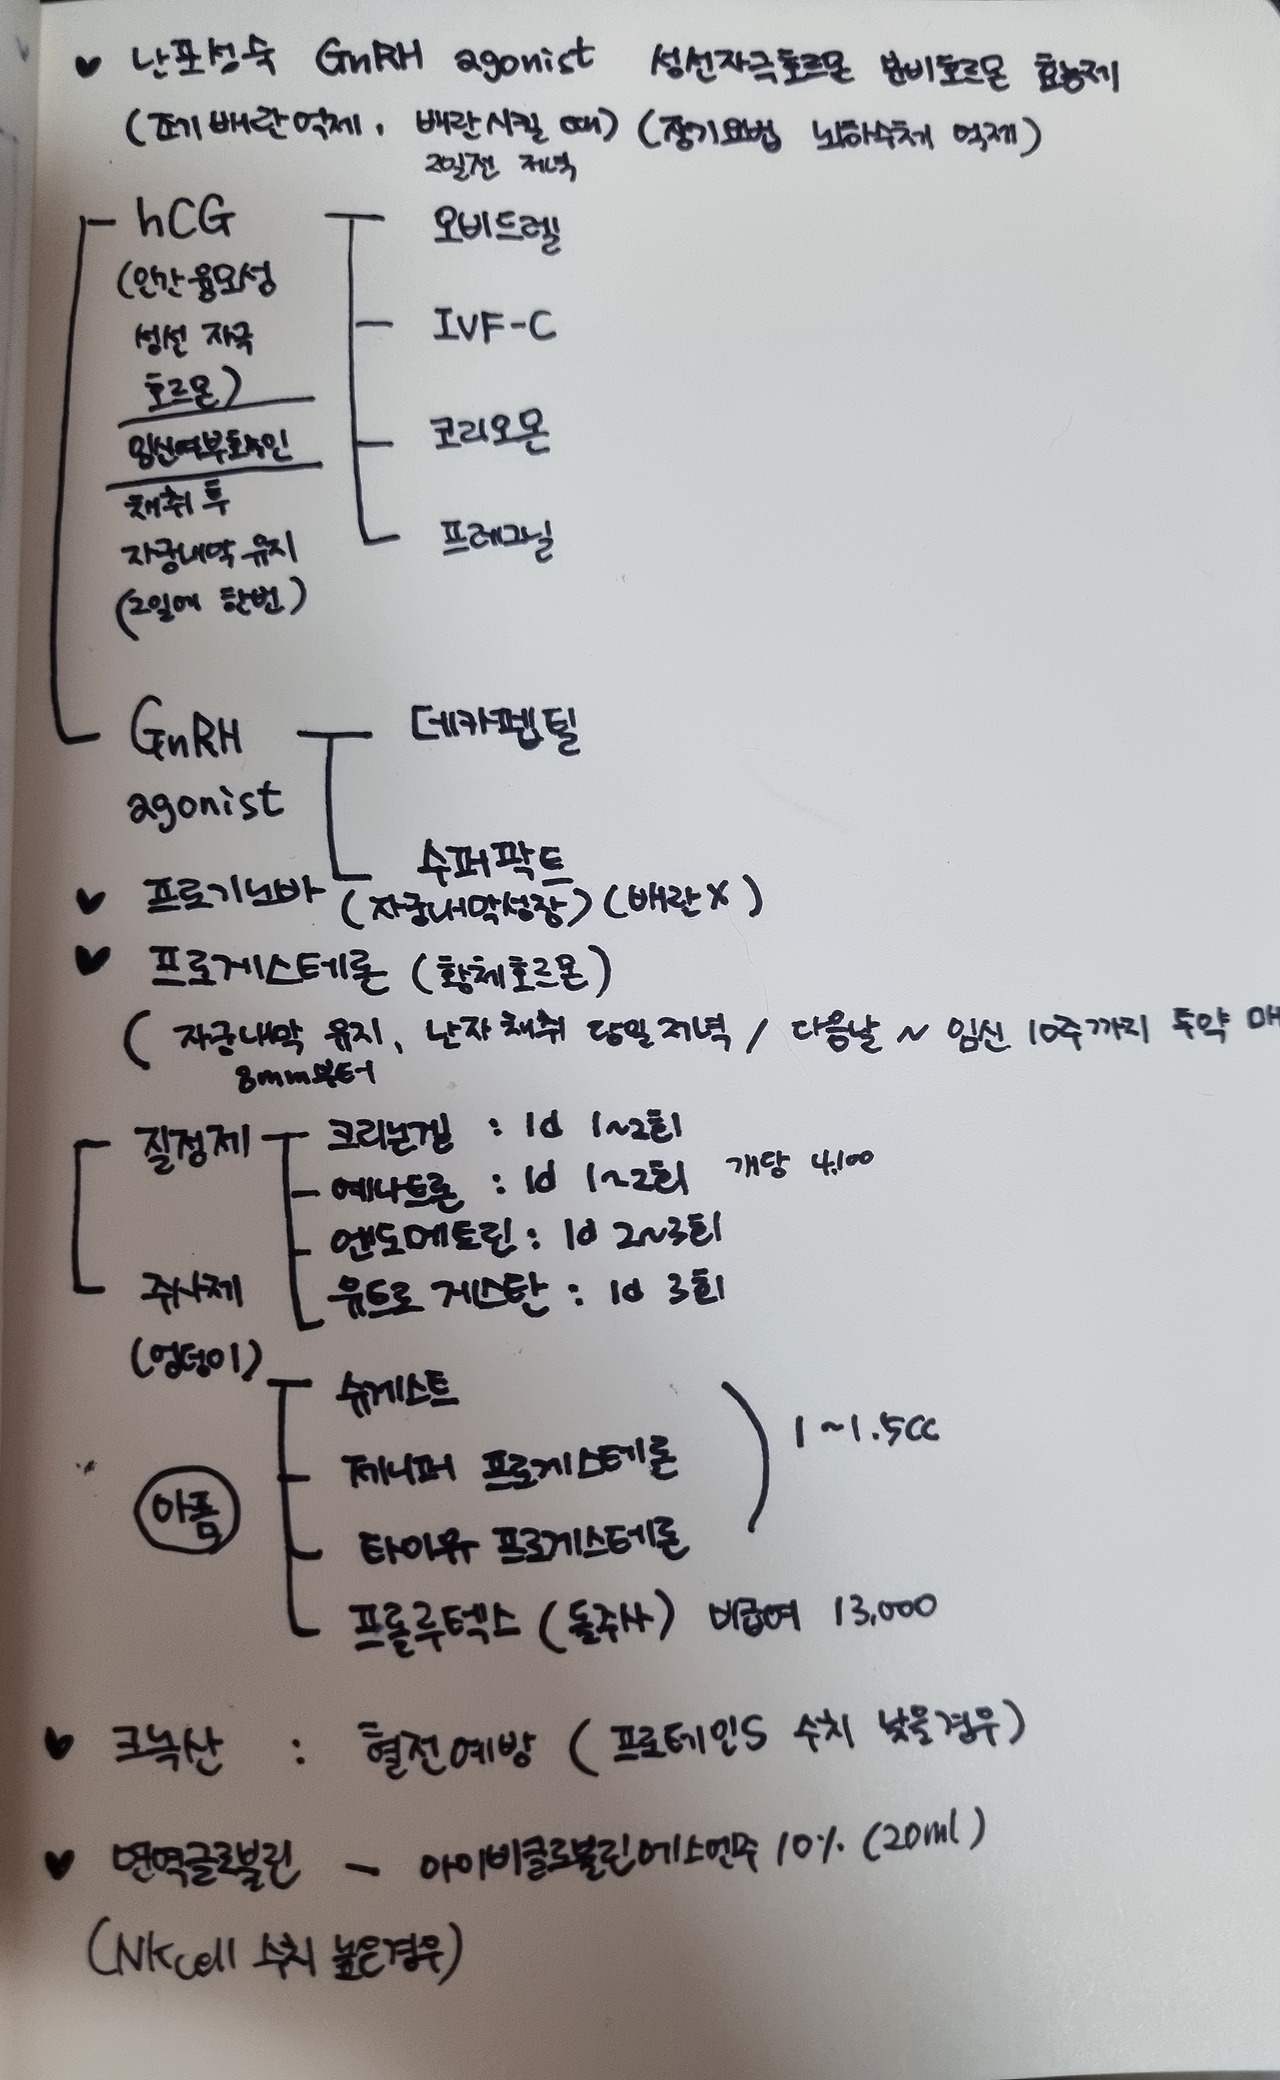 난포성숙 GnRH agonist 성선자극호르몬 분비호르몬 효능제
(조기배란억제, 배란시킬 때) (장기요법 뇌하수체 억제)
2일전 저녁
hCG
(인간융모성
성선 자극
호르몬)
임신여부확인
채취 후
자궁내막 유지
(2일에 한번)
오비드렐
IVF-C
코리오몬
프레그닐
GnRH
agonist
데카펩틸
수퍼팩트
프로기노바 (자궁내막성장) (배란X)
프로게스테론 (황체호르몬)
( 자궁내막 유지, 난자 채취 당일 저녁 / 다음날 ~ 임신 10주까지 투약 매
8mm부터
질정제
크리논겔 : 1d 1~2회
예나트론 : 1d 1~2회 개당 4,100
엔도메트린 : 1d 2~3회
유트로 게스탄 : 1d 3회
주사제
(엉덩이)
아픔
슈게스트
제니퍼 프로게스테론
타이유 프로게스테론
1~1.5cc
프롤루텍스 (돌주사) 비급여 13,000
크녹산 : 혈전예방 (프로테인S 수치 낮을경우)
면역글로불린 - 아이비글로불린에스엔주 10% (20ml)
(NKcell 수치 높은경우)